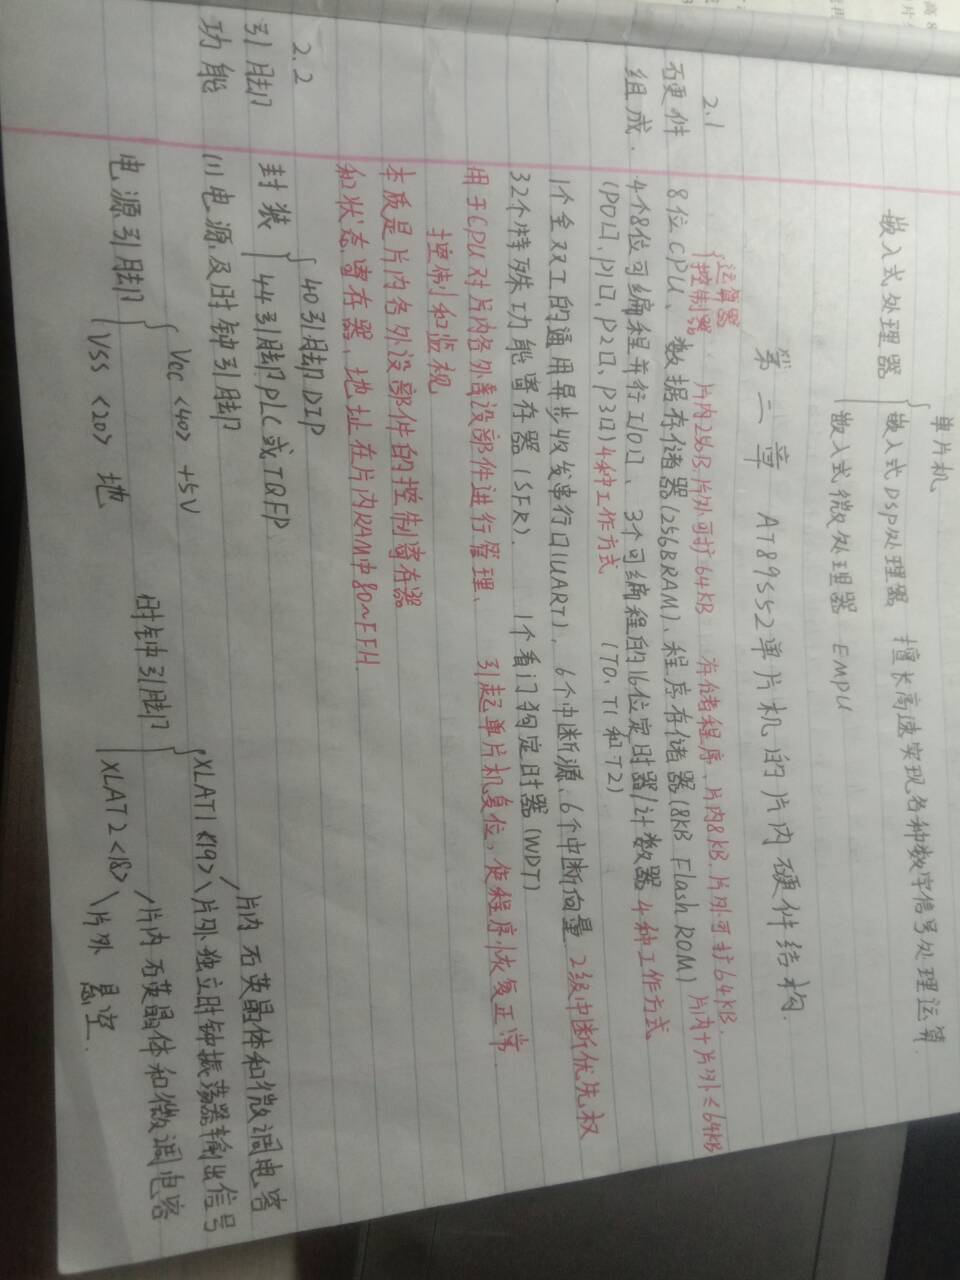 单片机
嵌入式处理器 嵌入式DSP处理器 擅长高速实现各种数字信号处理运算.
嵌入式微处理器 EMPU
第二章 AT89S52单片机的片内硬件结构.
2.1
硬件
组成.
运算器
控制器 片内256B.片外可扩64KB 存储程序、片内8KB.片外可扩64KB. 片内+片外≤64KB
8位CPU、数据存储器(256BRAM)、程序存储器(8KB Flash ROM)
4个8位可编程并行I/O口、3个可编程的16位定时器/计数器 4种工作方式
(P0口、P1口、P2口、P3口)4种工作方式 (T0、T1和T2)
1个全双工的通用异步收发串行口(UART)、6个中断源、6个中断向量 2级中断优先权
32个特殊功能寄存器(SFR). 1个看门狗定时器(WDT)
用于CPU对片内各外设部件进行管理、 引起单片机复位,使程序恢复正常
控制和监视
本质是片内各外设部件的控制寄存器
和状态寄存器、地址在片内RAM中80~FFH.
2.2
引脚
功能
40引脚DIP
封装
44引脚PLC或TQFP
(1)电源及时钟引脚
电源引脚 Vcc <40> +5V
VSS <20> 地
时钟引脚 XLAT1<19> 片内石英晶体和微调电容
片外独立时钟振荡器输出信号
XLAT2<18> 片内石英晶体和微调电容
片外 悬空.